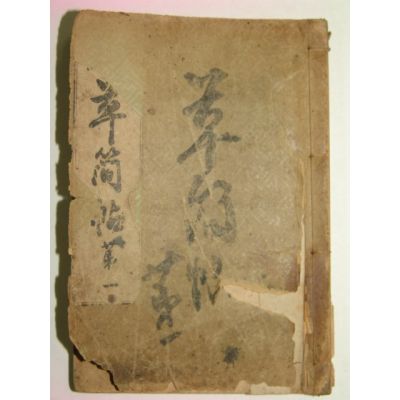 草簡帖
第一
草簡帖第一